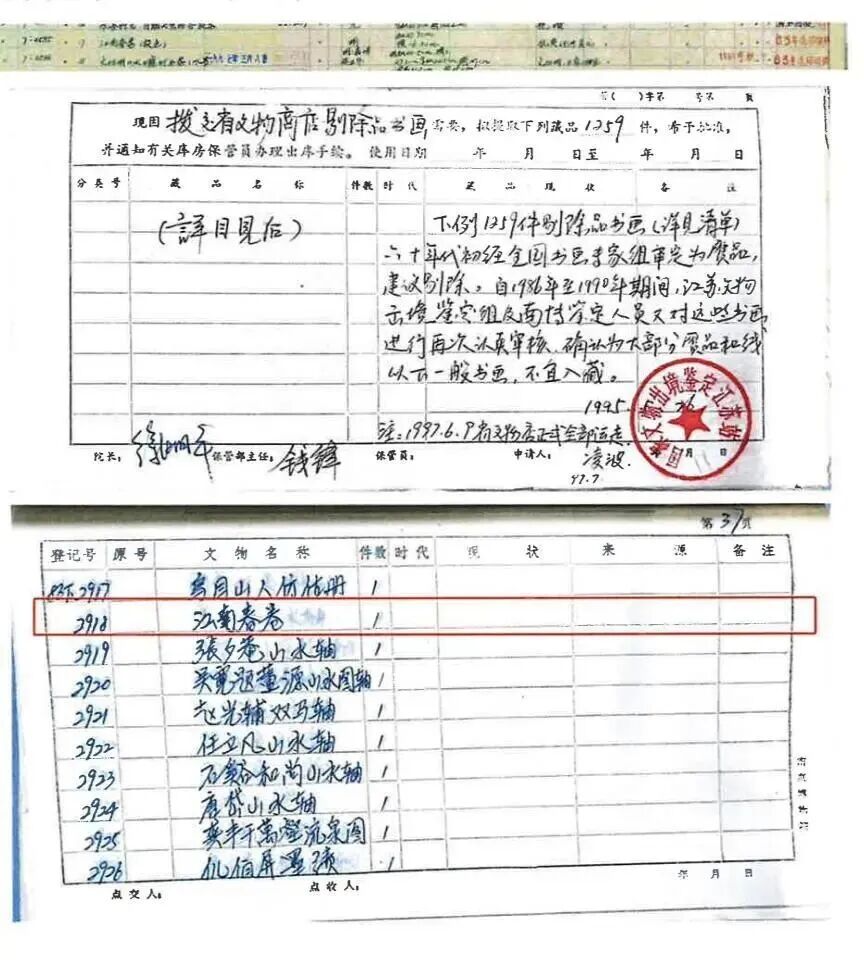 江南春卷
第( )字第 号第 页
现因 拨交省文物商店剔除品书画 需要，拟提取下列藏品 1259 件，希予批准，
并通知有关库房保管员办理出库手续。 使用日期 年 月 日至 年 月 日
分类号 藏品名称 件数 时代 藏品现状 备注
(詳目见后)
下例1259件剔除品书画(详见清单)
六十年代初经全国书画专家组审定为赝品，
建议剔除。自1986年至1990年期间，江苏文物
出境鉴定组及南博鉴定人员又对这些书画
进行再次认真审核，确认为大部分赝品和线
以下一般书画，不宜入藏。
1995. 26
注：1997.6.9省文物店正式全部运走
国家文物出境鉴定江苏站
院长： 徐湖平 保管部主任： 钱锋 保管员： 申请人： 凌波
97.7.
第37页
登记号 原号 文物名称 件数 时代 现状 来源 备注
2917 1
2918 江南春卷 1
2919 張夕菴山水轴 1
2920 山水图轴 1
2921 赵光辅双马轴 1
2922 任立凡山水轴 1
2923 石谿和尚山水轴 1
2924 唐岱山水轴 1
2925 龚半千萬壑流泉图 1
2926 1
点交人： 点收人： 年 月 日